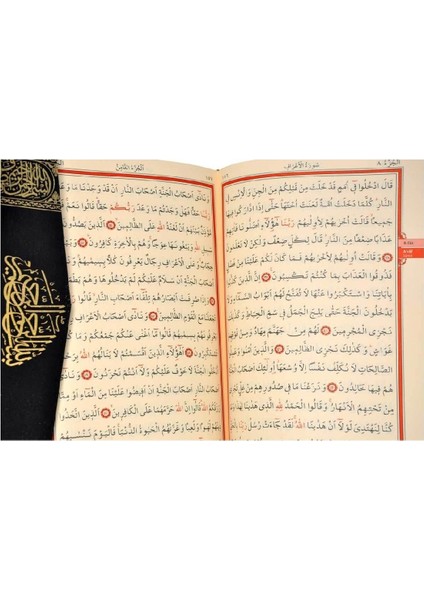 الجزء ٨
سورة الأعراف
قَالَ ادْخُلُوا فِي أُمَمٍ قَدْ خَلَتْ مِنْ قَبْلِكُمْ مِنَ الْجِنِّ وَالْإِنْسِ فِي
النَّارِ كُلَّمَا دَخَلَتْ أُمَّةٌ لَعَنَتْ أُخْتَهَا حَتَّى إِذَا ادَّارَكُوا فِيهَا
جَمِيعًا قَالَتْ أُخْرَيهُمْ لِأُولَيهُمْ رَبَّنَا هَؤُلَاءِ أَضَلُّونَا فَآتِهِمْ
عَذَابًا ضِعْفًا مِنَ النَّارِ قَالَ لِكُلٍّ ضِعْفٌ وَلَكِنْ لَا تَعْلَمُونَ
وَقَالَتْ أُولَيهُمْ لِأُخْرَيهُمْ فَمَا كَانَ لَكُمْ عَلَيْنَا مِنْ فَضْلٍ
فَذُوقُوا الْعَذَابَ بِمَا كُنْتُمْ تَكْسِبُونَ إِنَّ الَّذِينَ كَذَّبُوا
بِآيَاتِنَا وَاسْتَكْبَرُوا عَنْهَا لَا تُفَتَّحُ لَهُمْ أَبْوَابُ السَّمَاءِ
وَلَا يَدْخُلُونَ الْجَنَّةَ حَتَّى يَلِجَ الْجَمَلُ فِي سَمِّ الْخِيَاطِ وَكَذَلِكَ
نَجْزِي الْمُجْرِمِينَ لَهُمْ مِنْ جَهَنَّمَ مِهَادٌ وَمِنْ فَوْقِهِمْ
غَوَاشٍ وَكَذَلِكَ نَجْزِي الظَّالِمِينَ وَالَّذِينَ آمَنُوا وَعَمِلُوا
الصَّالِحَاتِ لَا نُكَلِّفُ نَفْسًا إِلَّا وُسْعَهَا أُولَئِكَ أَصْحَابُ الْجَنَّةِ
هُمْ فِيهَا خَالِدُونَ وَنَزَعْنَا مَا فِي صُدُورِهِمْ مِنْ غِلٍّ تَجْرِي
مِنْ تَحْتِهِمُ الْأَنْهَارُ وَقَالُوا الْحَمْدُ لِلَّهِ الَّذِي هَدَينَا لِهَذَا وَمَا
كُنَّا لِنَهْتَدِيَ لَوْلَا أَنْ هَدَينَا اللَّهُ لَقَدْ جَاءَتْ رُسُلُ رَبِّنَا
الجزء الثامن
وَنَادَى أَصْحَابُ الْجَنَّةِ أَصْحَابَ النَّارِ أَنْ قَدْ وَجَدْنَا مَا وَعَدَنَا
رَبُّنَا حَقًّا فَهَلْ وَجَدْتُمْ مَا وَعَدَ رَبُّكُمْ حَقًّا قَالُوا نَعَمْ
بَيْنَهُمْ أَنْ لَعْنَةُ اللَّهِ عَلَى الظَّالِمِينَ الَّذِينَ يَصُدُّونَ
اللَّهِ وَيَبْغُونَهَا عِوَجًا وَهُمْ بِالْآخِرَةِ كَافِرُونَ
حِجَابٌ وَعَلَى الْأَعْرَافِ رِجَالٌ يَعْرِفُونَ كُلًّا بِسِيمَيهُمْ وَنَادَوْا
أَصْحَابَ الْجَنَّةِ أَنْ سَلَامٌ عَلَيْكُمْ لَمْ يَدْخُلُوهَا وَهُمْ يَطْمَعُونَ
صُرِفَتْ أَبْصَارُهُمْ تِلْقَاءَ أَصْحَابِ النَّارِ قَالُوا رَبَّنَا
تَجْعَلْنَا مَعَ الْقَوْمِ الظَّالِمِينَ وَنَادَى أَصْحَابُ الْأَعْرَافِ
يَعْرِفُونَهُمْ بِسِيمَيهُمْ قَالُوا مَا أَغْنَى عَنْكُمْ جَمْعُكُمْ وَمَا
أَهَؤُلَاءِ الَّذِينَ أَقْسَمْتُمْ لَا يَنَالُهُمُ اللَّهُ
عَلَيْكُمْ وَلَا أَنْتُمْ تَحْزَنُونَ وَنَادَى
أَصْحَابُ النَّارِ أَصْحَابَ الْجَنَّةِ أَنْ أَفِيضُوا عَلَيْنَا مِنَ الْمَاءِ أَوْ مِمَّا
اللَّهُ قَالُوا إِنَّ اللَّهَ حَرَّمَهُمَا عَلَى الْكَافِرِينَ الَّذِينَ اتَّخَذُوا
دِينَهُمْ لَهْوًا وَلَعِبًا وَغَرَّتْهُمُ الْحَيَوةُ الدُّنْيَا فَالْيَوْمَ نَنْسَيهُمْ